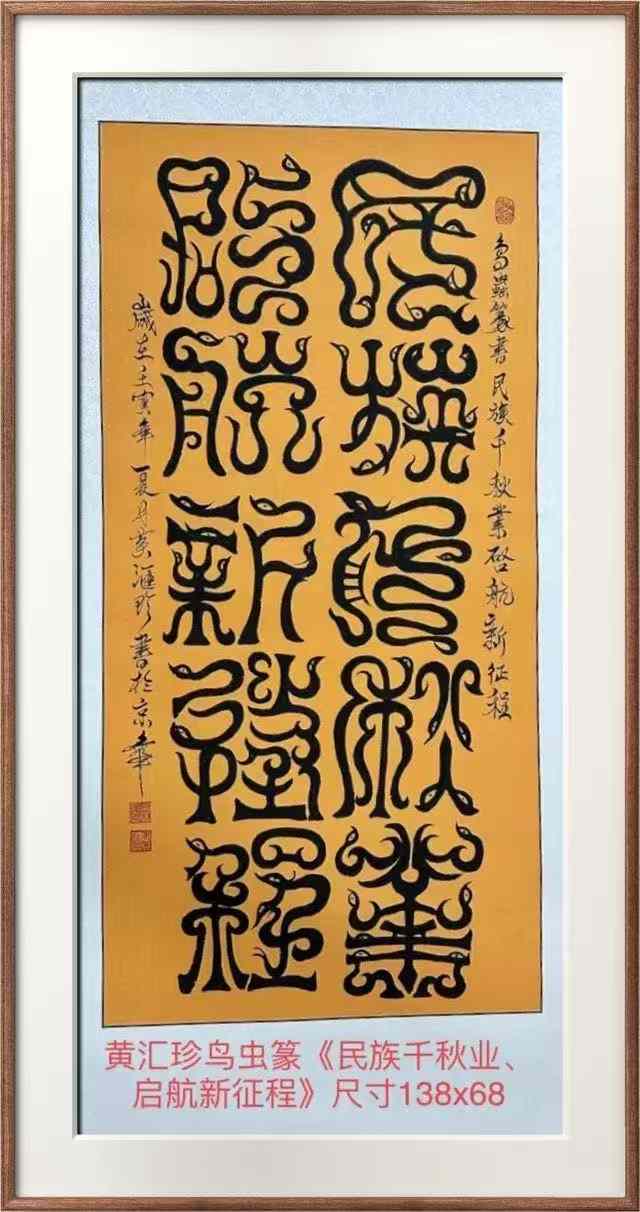 鸟蟲篆書民族千秋業啓航新征程
民族千秋業
啓航新征程
歲在壬寅年夏月黄滙珍書於京華
黄汇珍鸟虫篆《民族千秋业、
启航新征程》尺寸138x68